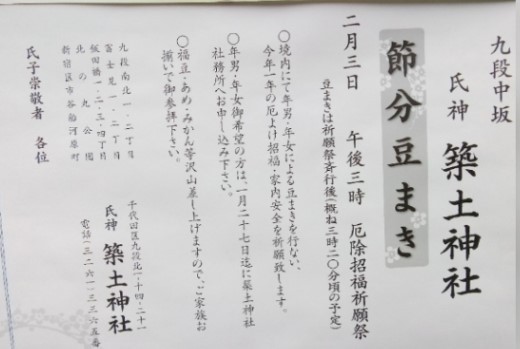 九段中坂
氏神 築土神社
節分豆まき
二月三日 午後三時 厄除招福祈願祭
豆まきは祈願祭斉行後(概ね三時二〇分頃の予定)
〇境内にて年男・年女による豆まきを行ない、
今年一年の厄よけ招福・家内安全を祈願致します。
〇年男・年女御希望の方は、一月二十七日迄に築土神社
社務所へお申し込み下さい。
〇福豆・あめ・みかん等沢山差し上げますので、ご家族お
揃いで御参拝下さい。
千代田区九段北一-十四-二十一
氏神 築土神社
電話(三二六一)三三六五番
九段南北一・二丁目
富士見一・二丁目
飯田橋一・二・三・四丁目
北の丸公園
新宿区市谷船河原町
氏子崇敬者 各位